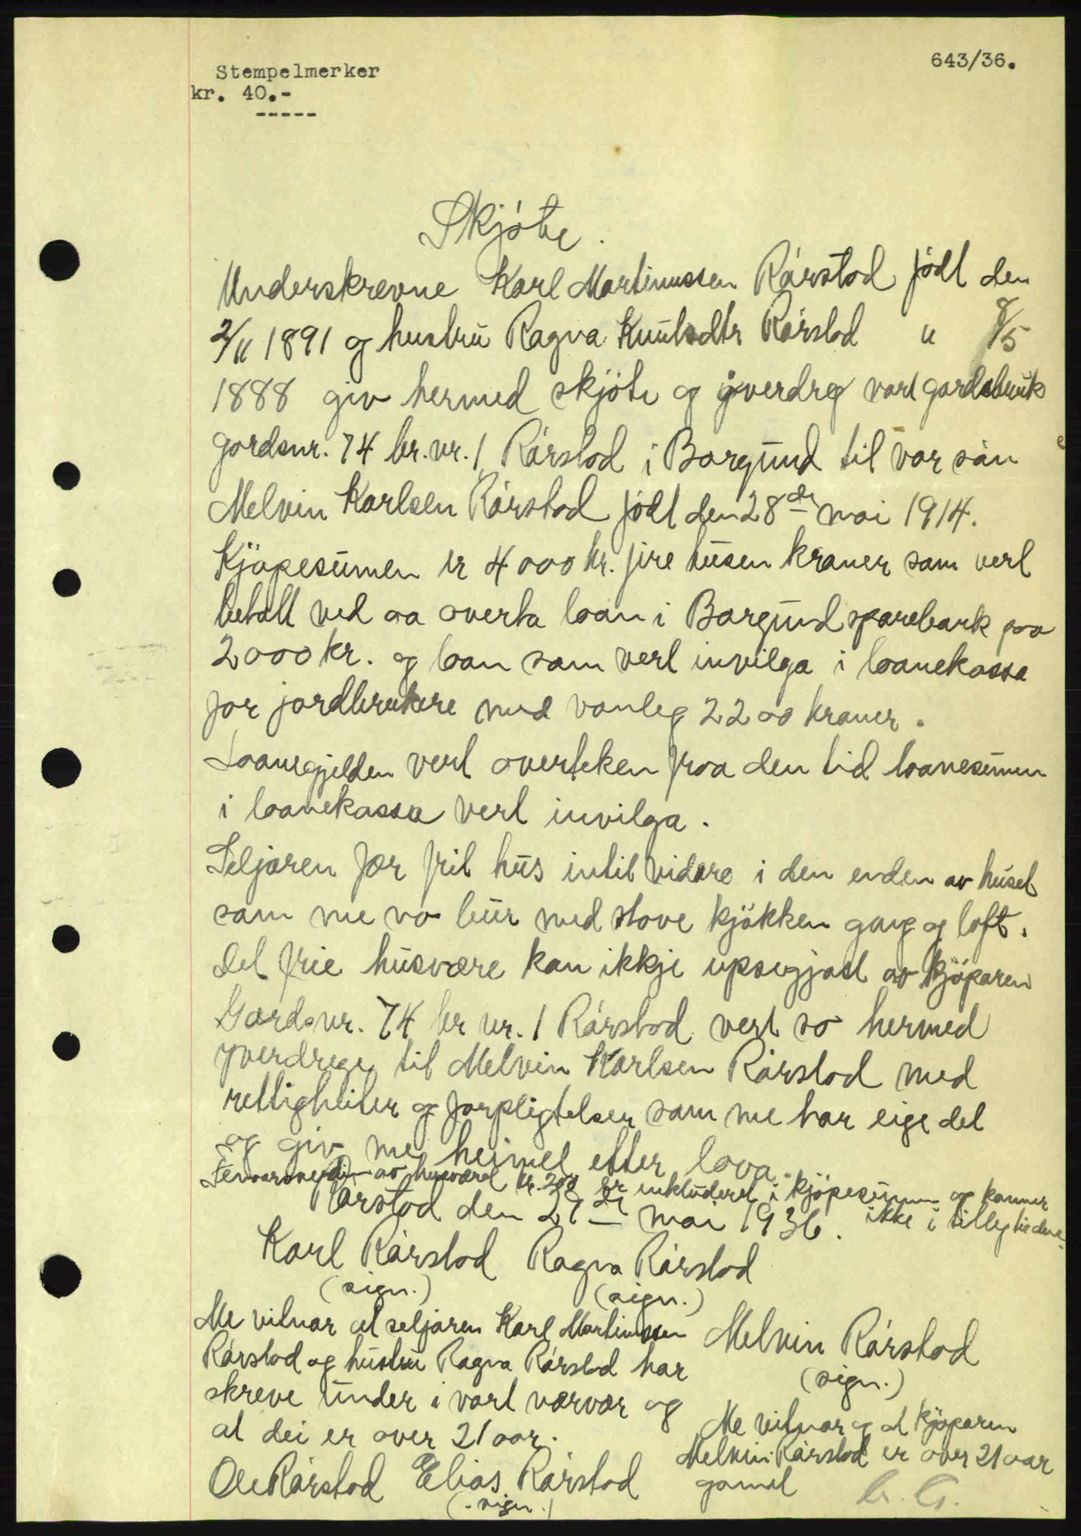 Stempelmerker
kr. 40.-
-----
643/36.
Skjöte.
Underskrevne Karl Martinussen Rörstad födt den
2/11 1891 og hustru Ragna Knutsdtr Rörstad " 8/5
1888 giv hermed skjöte og yverdreg vart gardsbruk
gardsnr. 74 br. nr. 1 Rörstad i Borgund til vor sön
Melvin Karlsen Rörstad födt den 28de mai 1914.
Kjöpesumen er 4000 kr. fire tusen kroner som vert
betalt ved aa overta laan i Borgund sparebank paa
2000 kr. og laan som vert invilga i laanekassa
for jordbrukere med vanleg 2200 kroner.
Laanegjelden vert overteken fraa den tid laanesumen
i laanekassa vert invilga.
Seljaren fær frit hus intil vidare i den enden av huset
som me no bur med stove kjökken gang og loft.
Det frie husvære kan ikkje upsegjast av kjöparen
Gardsnr. 74 br nr. 1 Rörstad vert so hermed
yverdrege til Melvin Karlsen Rörstad med
rettigheiter og forpligtelser som me har eige det
og giv me heimel etter lova.
av husværet kr. 200 er inkluderet i kjöpesumen og kommer
ikke i tilleg til denne.
Rörstad den 27de mai 1936.
Karl Rörstad Ragna Rörstad
(sign.) (sign.)
Me vitnar at seljaren Karl Martinussen
Rörstad og hustru Ragna Rörstad har
skreve under i vart nærvær og
at dei er over 21 aar.
Ole Rörstad Elias Rörstad
(sign.)
Melvin Rörstad
(sign.)
Me vitnar og at kjöparen
Melvin Rörstad er over 21 aar
gamal